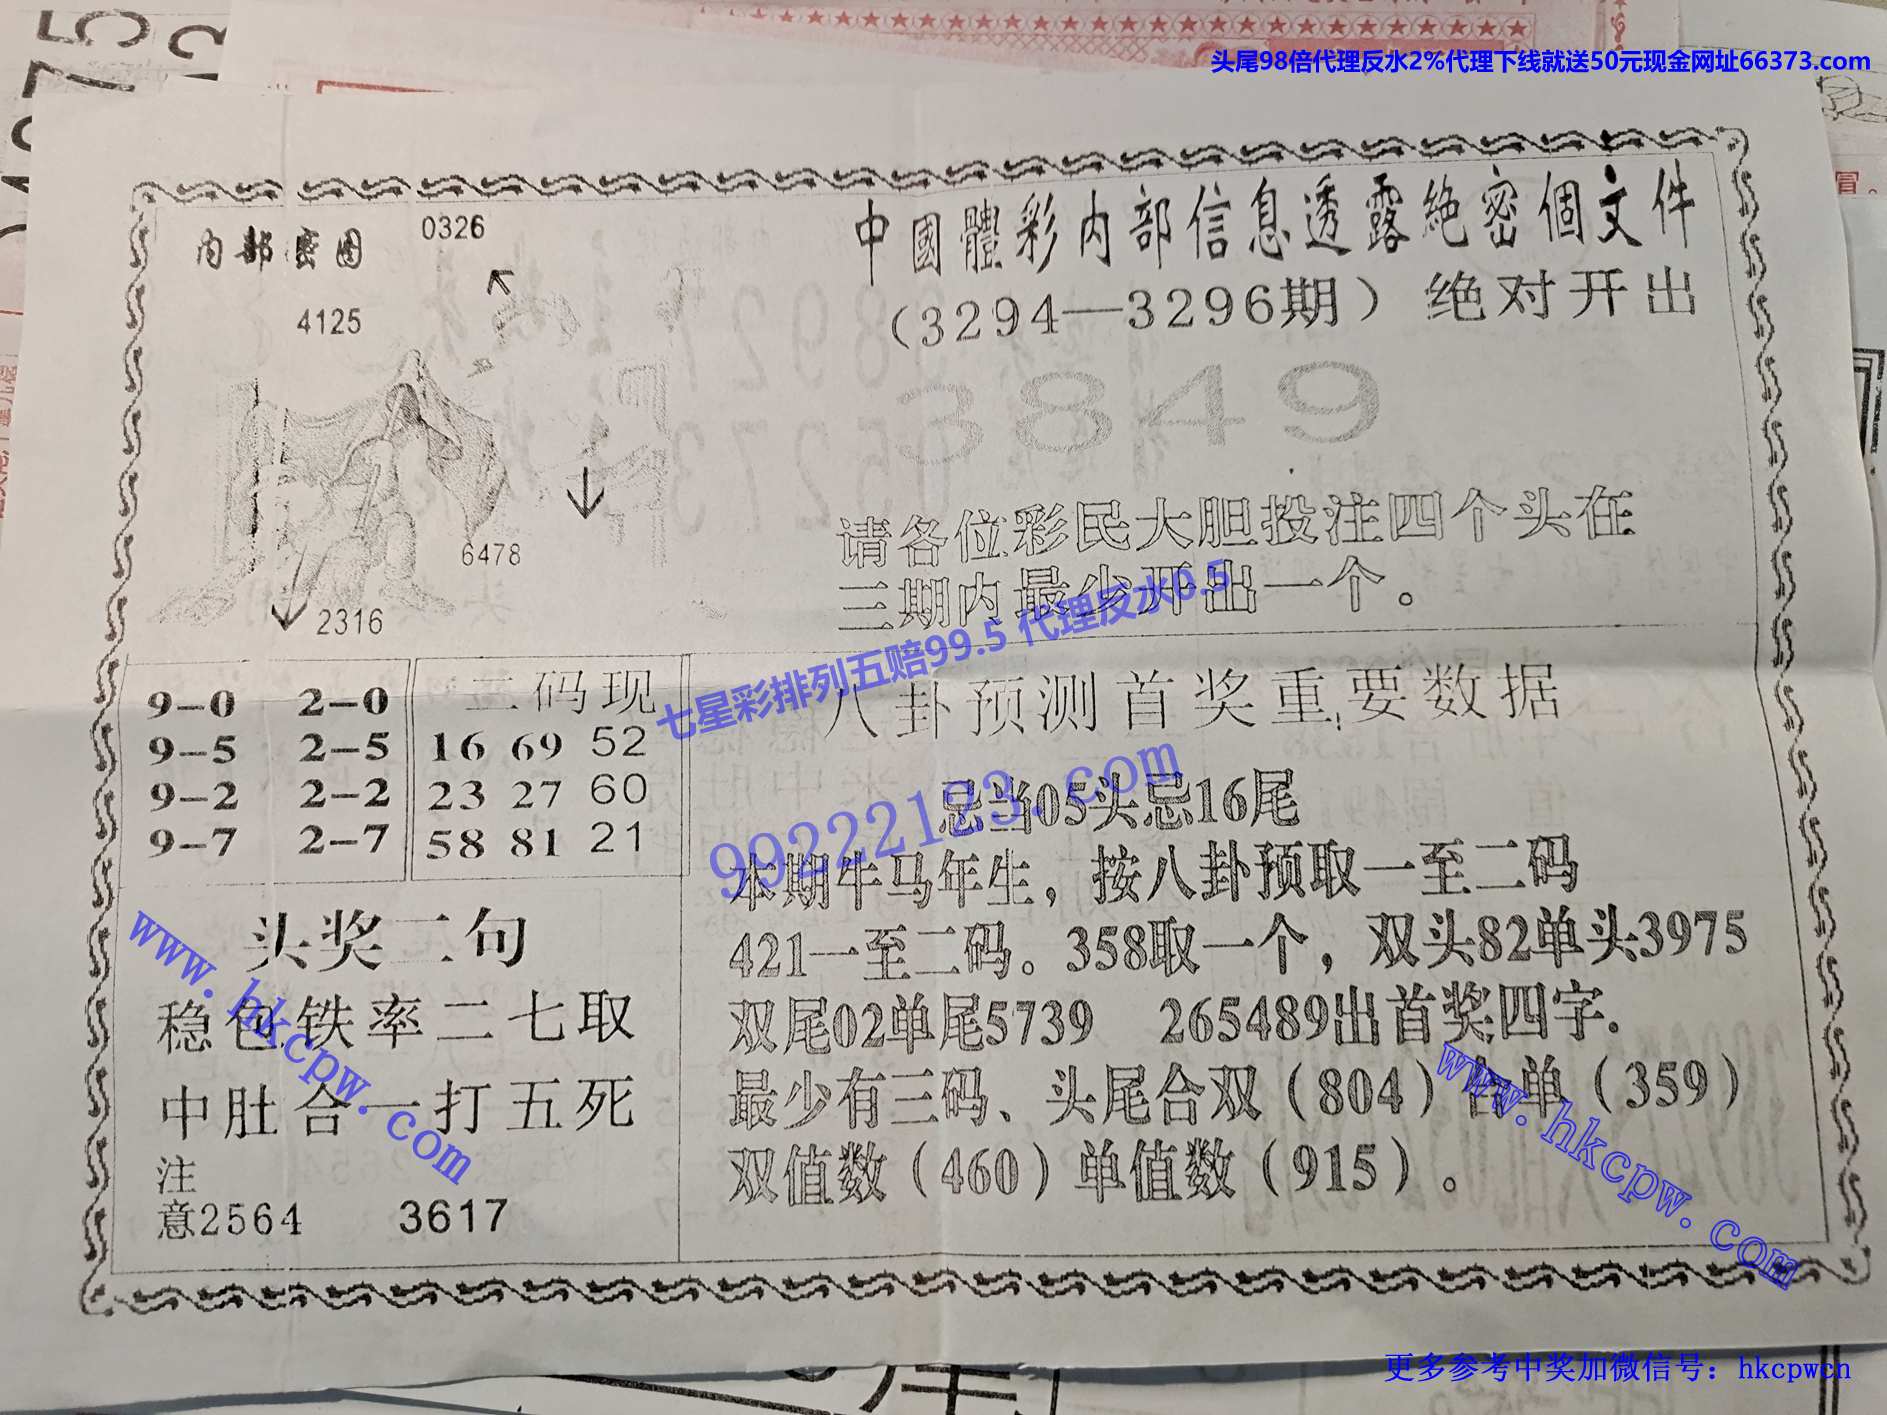 头尾98倍代理反水2%代理下线就送50元现金网址66373.com
内部密图
0326
4125
6478
2316
中國體彩内部信息透露絶密個文件
（3294—3296期）绝对开出
3849
请各位彩民大胆投注四个头在
三期内最少开出一个。
七星彩排列五赔99.5 代理反水0.5
99222123.com
9-0 2-0
9-5 2-5
9-2 2-2
9-7 2-7
二码现
16 69 52
23 27 60
58 81 21
八卦预测首奖重要数据
忌当05头忌16尾
本期牛马年生，按八卦预取一至二码
421一至二码。358取一个，双头82单头3975
双尾02单尾5739 265489出首奖四字.
最少有三码、头尾合双（804）合单（359）
双值数（460）单值数（915）。
头奖二句
稳包铁率二七取
中肚合一打五死
注
意2564 3617
www.hkcpw.com
www.hkcpw.com
更多参考中奖加微信号：hkcpwcn